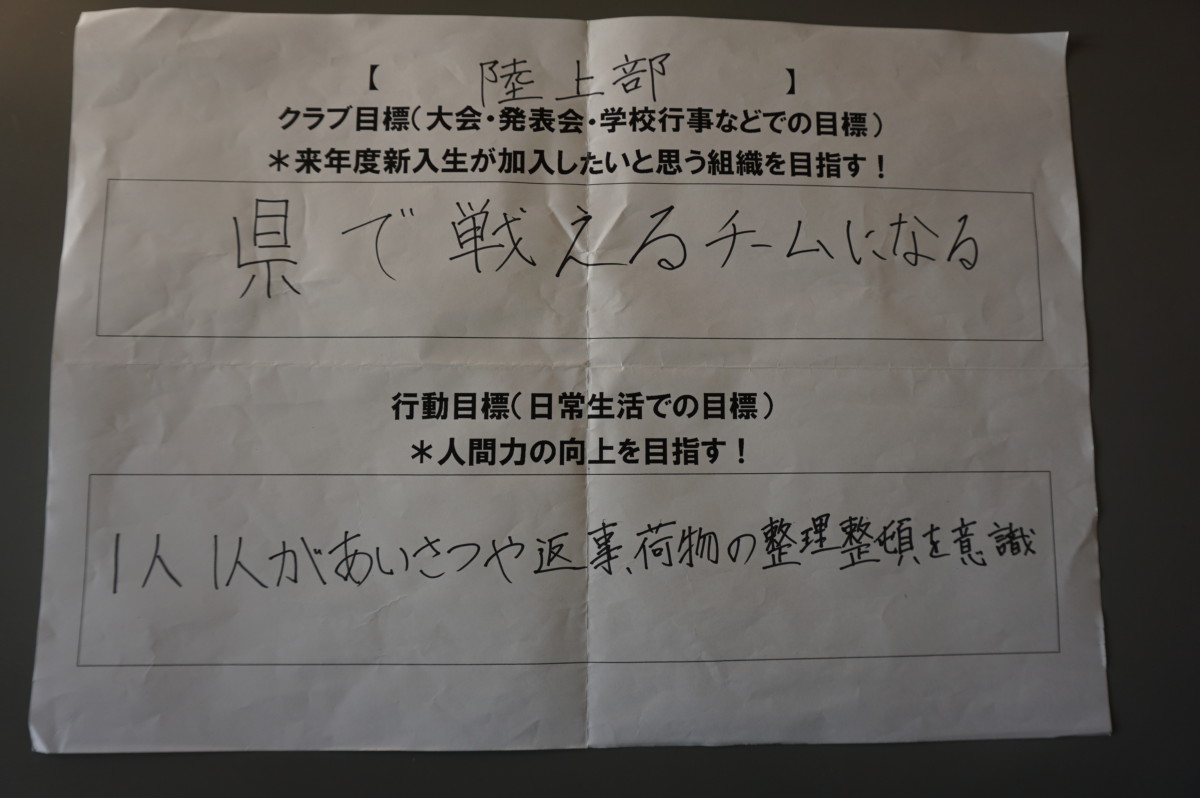 【 陸上部 】
クラブ目標(大会・発表会・学校行事などでの目標)
＊来年度新入生が加入したいと思う組織を目指す！
県で戦えるチームになる
行動目標(日常生活での目標)
＊人間力の向上を目指す！
1人1人があいさつや返事、荷物の整理整頓を意識